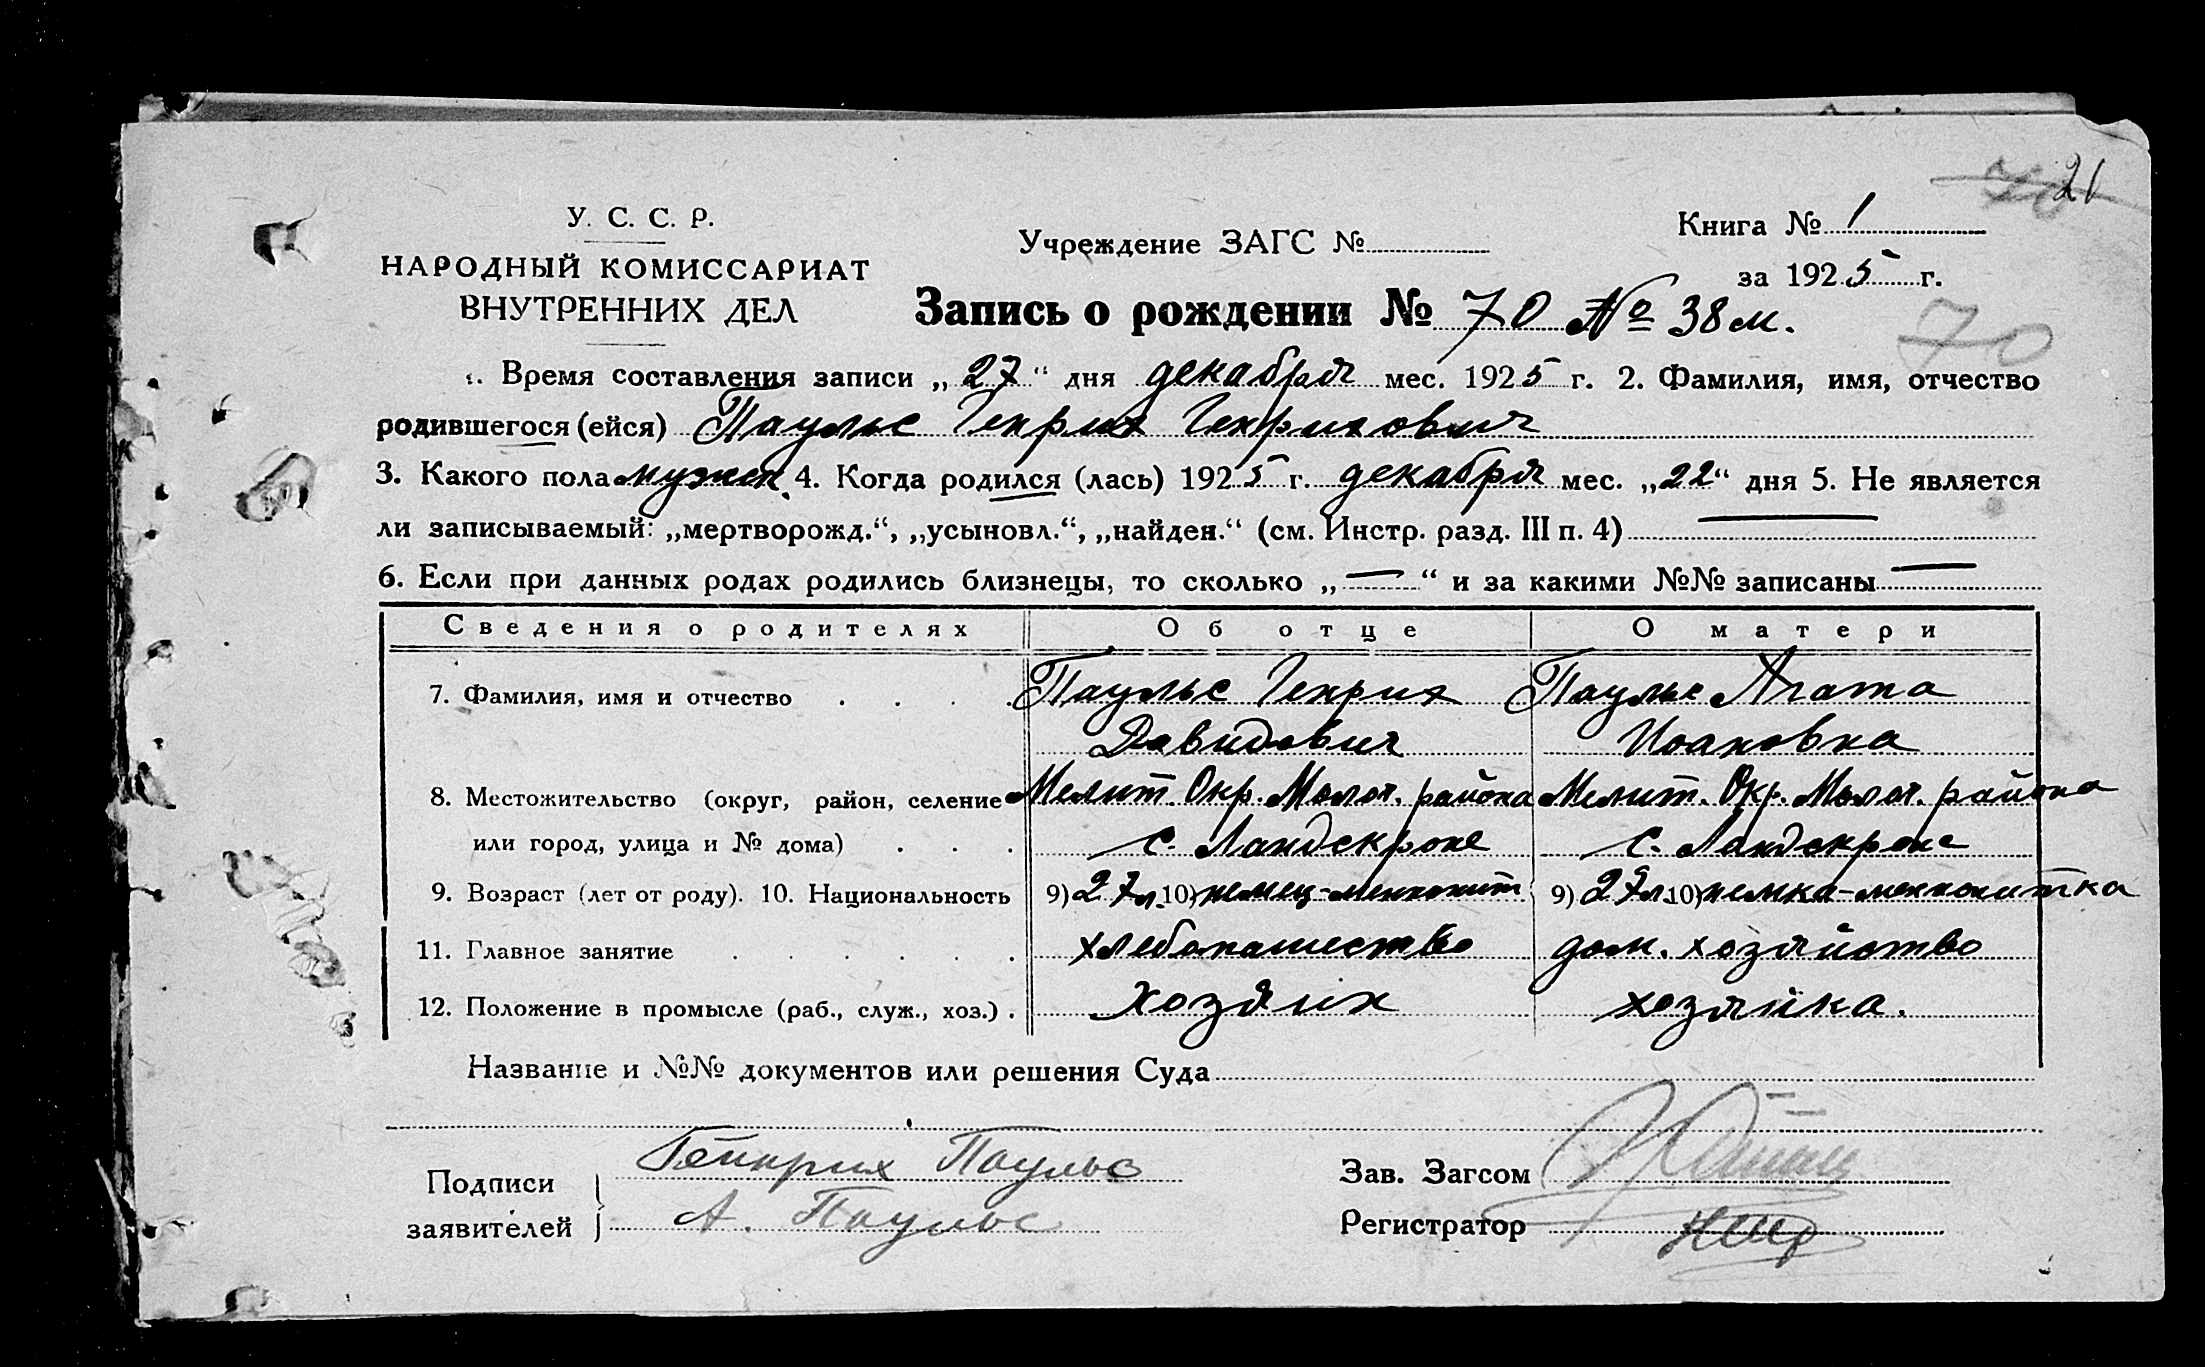 21
70
У. С. С. Р.
НАРОДНЫЙ КОМИССАРИАТ
ВНУТРЕННИХ ДЕЛ
Учреждение ЗАГС №
Книга № 1
за 1925 г.
Запись о рождении № 70 № 38 м.
70
1. Время составления записи „27“ дня декабря мес. 1925 г. 2. Фамилия, имя, отчество
родившегося (ейся) Паульс Генрих Генрихович
3. Какого пола мужск. 4. Когда родился (лась) 1925 г. декабря мес. „22“ дня 5. Не является
ли записываемый: „мертворожд.“, „усыновл.“, „найден.“ (см. Инстр. разд. III п. 4) —
6. Если при данных родах родились близнецы, то сколько „—“ и за какими №№ записаны —
Сведения о родителях Об отце О матери
7. Фамилия, имя и отчество . . . . Паульс Генрих Паульс Агата
Давидович Исаковна
8. Местожительство (округ, район, селение Мелит. Окр. Молоч. района Мелит. Окр. Молоч. района
или город, улица и № дома) . . . с. Ландскроне с. Ландскроне
9. Возраст (лет от роду). 10. Национальность 9) 27 л. 10) немец-меннонит 9) 27 л. 10) немка-меннонитка
11. Главное занятие . . . . . . хлебопашество дом. хозяйство
12. Положение в промысле (раб., служ., хоз.) . хозяин хозяйка.
Название и №№ документов или решения Суда
Подписи
заявителей
Генрих Паульс
А. Паульс
Зав. Загсом
Регистратор